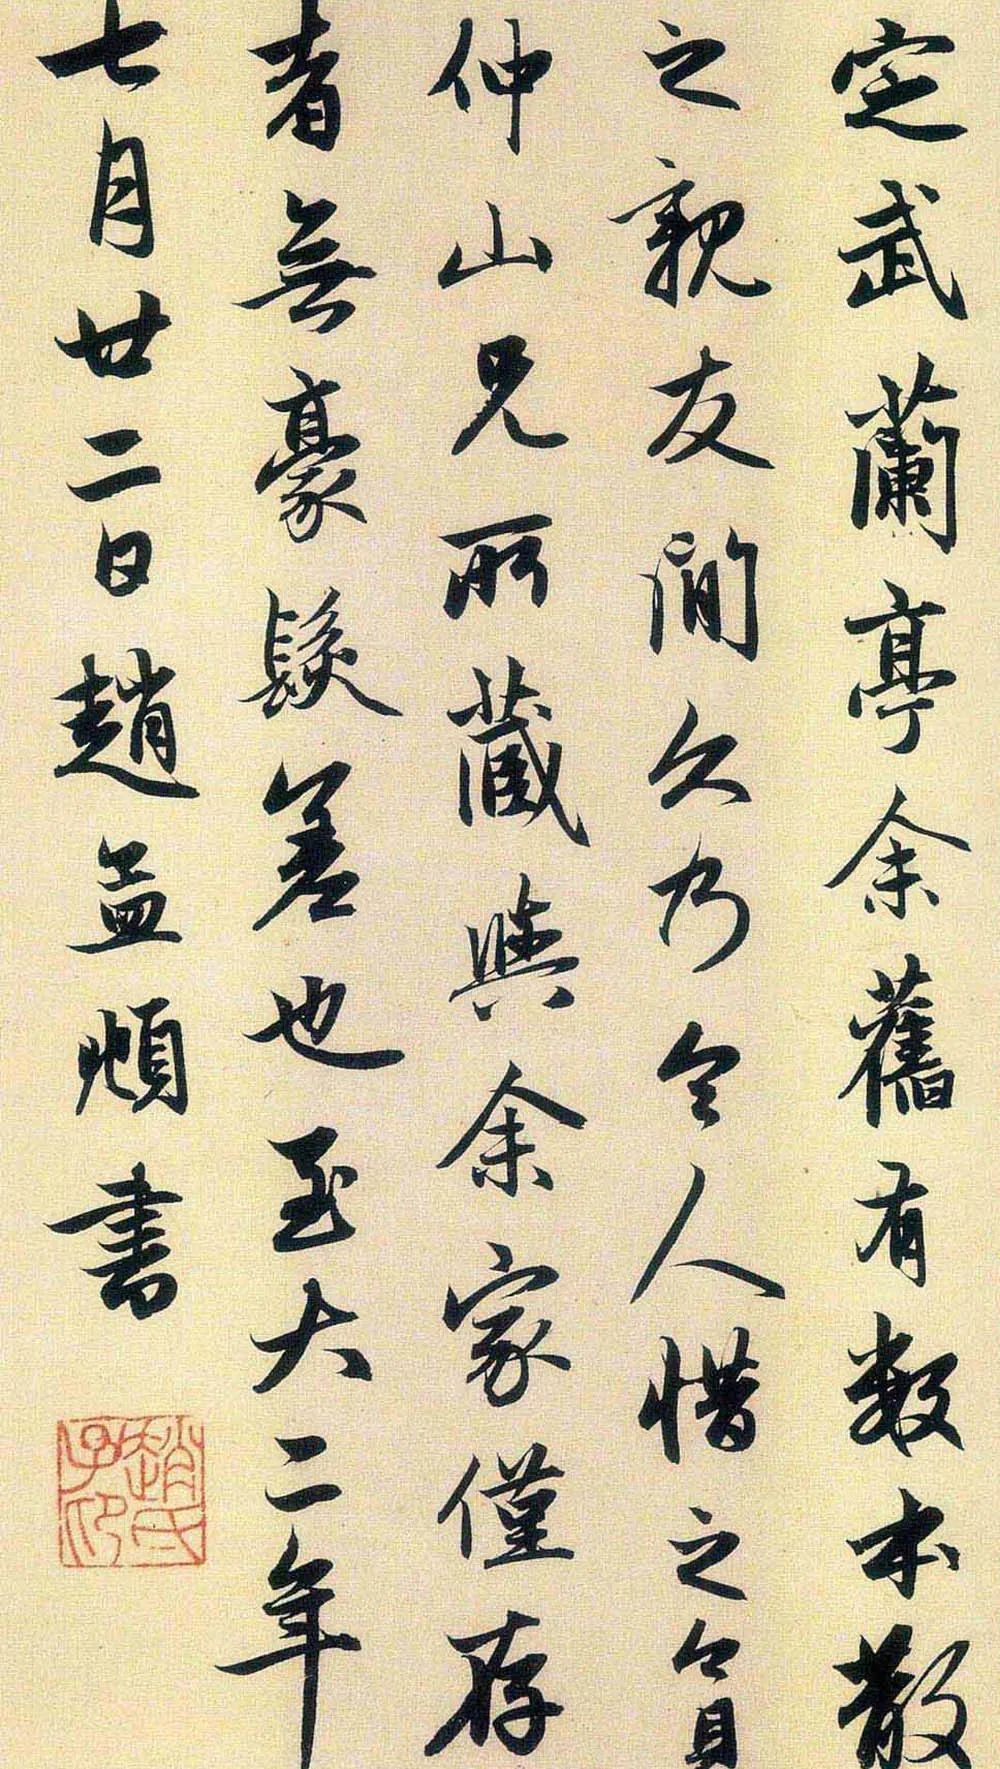 定武蘭亭余舊有數本散
之親友間久乃令人惜之今
仲山兄所藏與余家僅存
者無豪髮差也至大二年
七月廿二日趙孟頫書
趙氏子昂